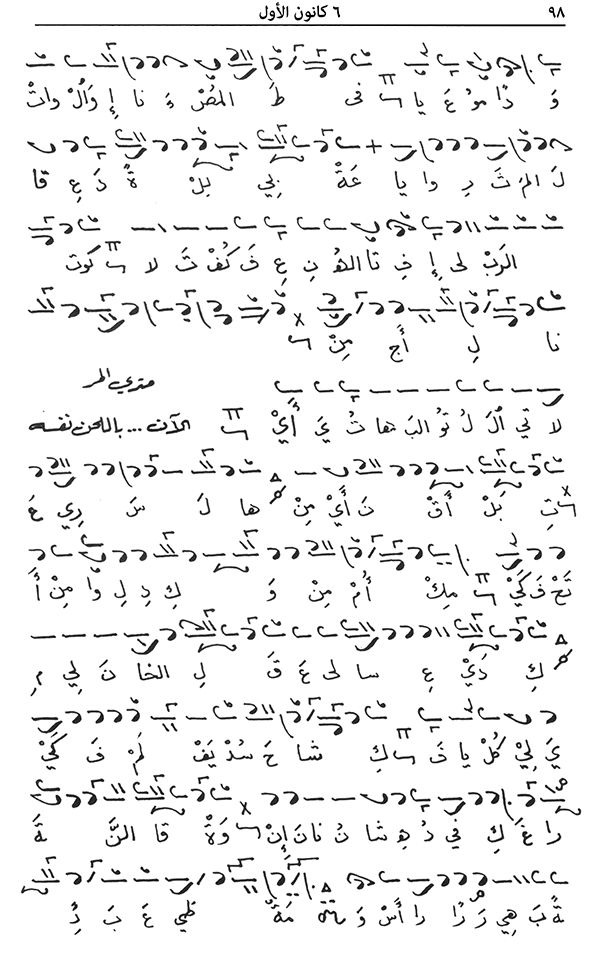 ٩٨ ٦ كانون الأول
في ظَ المصْ ءَ نا إِ وَالْ واتْ
لَ المُ ثَ دِ وا يا عَةْ بِي بِلْ ةُ دَ عِ قا
الرَبْ لى إِ فِ تا الهُ نِ عِ فَ كَفْ ثَ لا كوت
نا لِ أَجْ مِنْ
متري المر
لا تي آلَ لُ تُو البَ ها تُ يَ أَيْ الآن ... باللحن نفسه
تِ بَلْ أَقْ نَ أَيْ مِنْ ها لَ سَ رِي عَ
تَحْ فَ كَيْ مِكْ أُمْ مِنْ وَ كِ دِ لِ وا مِنْ أَ
كِ دَيْ عِ سا لى عَ قَ لِ الخا نَ لِي مِ
يَ لِيْ كُلْ يا فَ كِ شا حَ سَدْ يَقْ لَمْ فَ كَيْ
را عَ كِ في دُ هِ شا نُ نا نَ إِنْ وَةْ قا النَّ ةَ
ةُ بَ هِي را أَسْ وَ مَةٌ ظِي عَ بَ ذِ